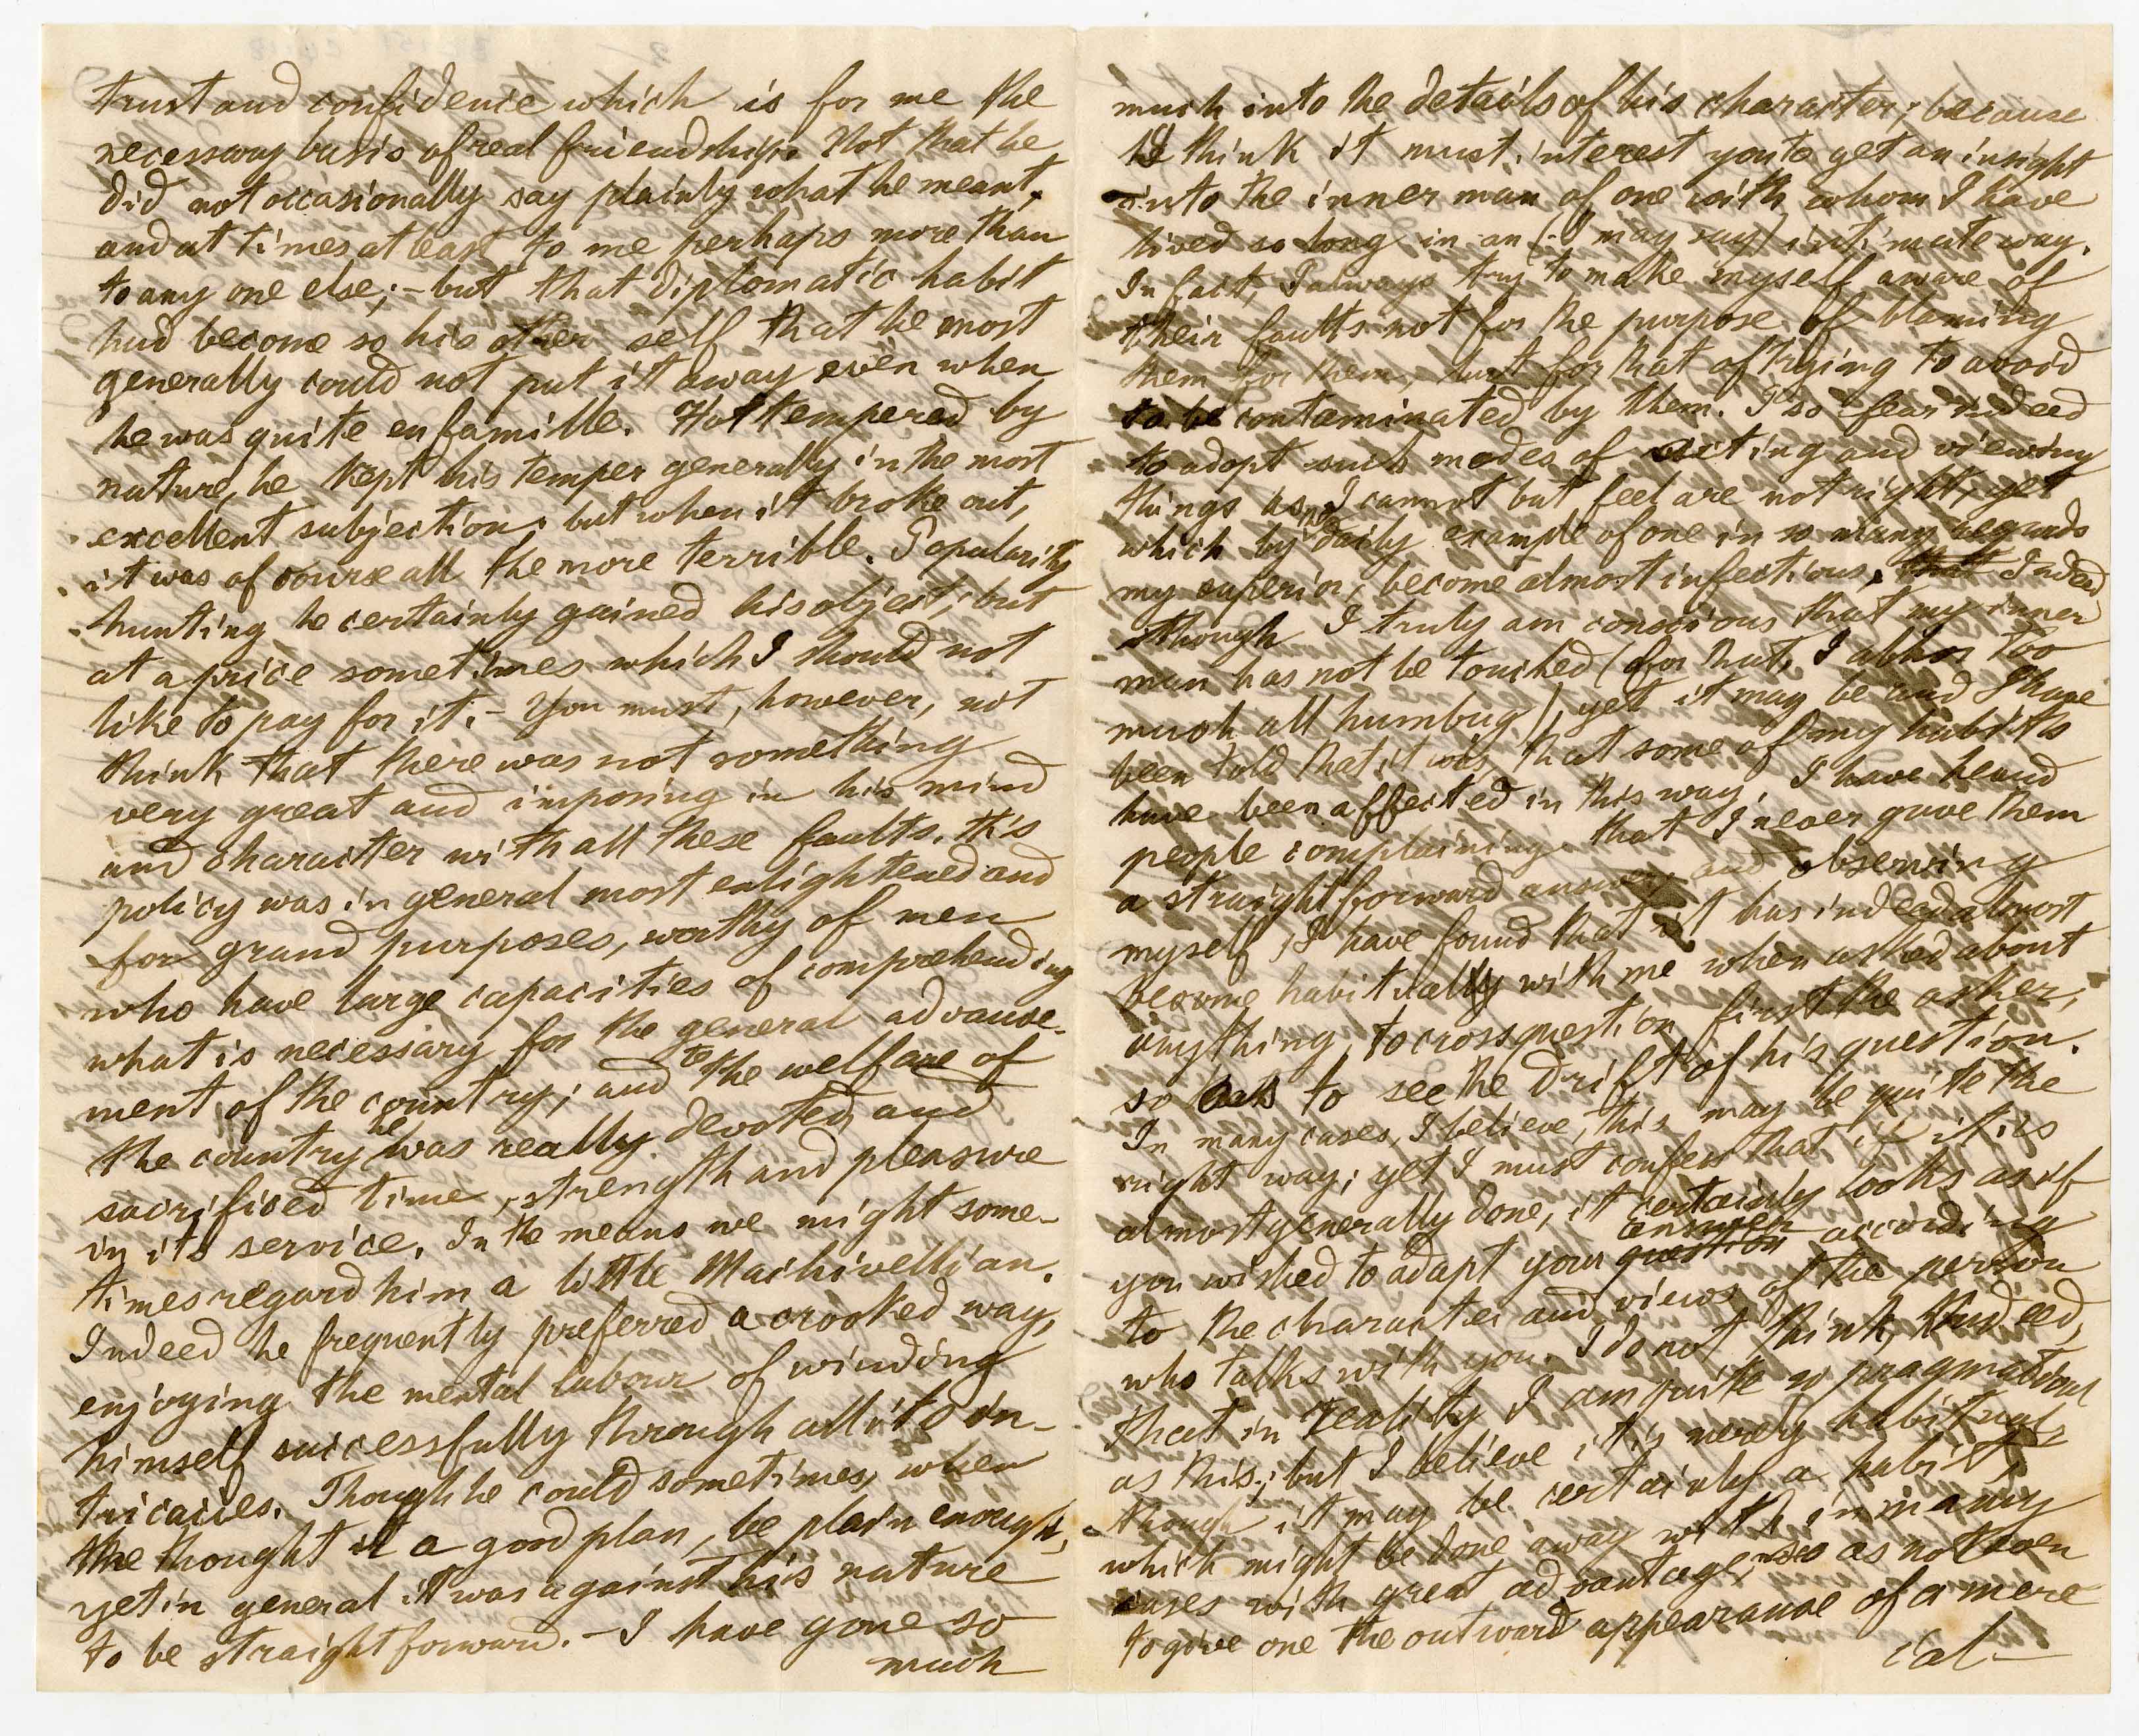 trust and confidence which is for me the
necessary basis of real friendship. Not that he
did not occasionally say plainly what he meant,
and at times at least to me perhaps more than
to any one else; – but that diplomatic habit
had become so his other self that he most
generally could not put it away even when
he was quite en famille. Hottempered by
nature, he kept his temper generally in the most
excellent subjection; but when it broke out,
it was of course all the more terrible. Popularity
hunting he certainly gained his object; but
at a price sometimes which I should not
like to pay for it. – You must, however, not
think that there was not something
very great and imposing in his mind
and character with all these faults. His
policy was in general most enlightened and
for grand purposes, worthy of men
who have large capacities of comprehending
what is necessary for the general advance-
ment of the country; and to the welfare of
the country he was really devoted, and
sacrificed time, strength and pleasure
in its service. In the means we might some-
times regard him a little Machivellian.
Indeed he frequently preferred a crooked way,
enjoying the mental labour of winding
himself successfully through all its in-
tricacies. Though he could sometimes, when
he thought it a good plan, be plain enough,
yet in general it was against his nature
to be straightforward. – I have gone so
much
much into the details of his character; because
I think it must interest you to get an insight
into the inner man of one with whom I have
lived so long in an (I may say) intimate way.
In fact, I always try to make myself aware of
their faults not for the purpose of blaming
them for them, but for that of trying to avoid
to be contaminated by them. I so fear indeed
to adopt such modes of acting and viewing
things as I cannot but feel are not right, yet
which by daily example of one in so many regards
my superior, become almost infectious. that Indeed
though I truly am conscious that my inner
man has not be touched (for that, I abhor too
much all humbug), yet it may be and I have
been told that it was that some of my habits
have been affected in this way. I have heard
people complaining that I never gave them
a straightforward answer, and observing
myself, I have found that it has indeed almost
become habitually with me when asked about
anything, to crossquestion first the asker,
so as to see the drift of his question.
In many cases, I believe, this may be quite the
right way; yet I must confess that if it is
almost generally done, it certainly looks as if
you wished to adapt your question answer according
to the character and views of the person
who talks with you. I do not think, indeed,
that in reality I am quite so pragmatical
as this; but I believe it is merely habitual,
though it may be certainly a habit,
which might be done away with in many
cases with great advantage, so as not even
to give one the outward appearance of a mere
cal-